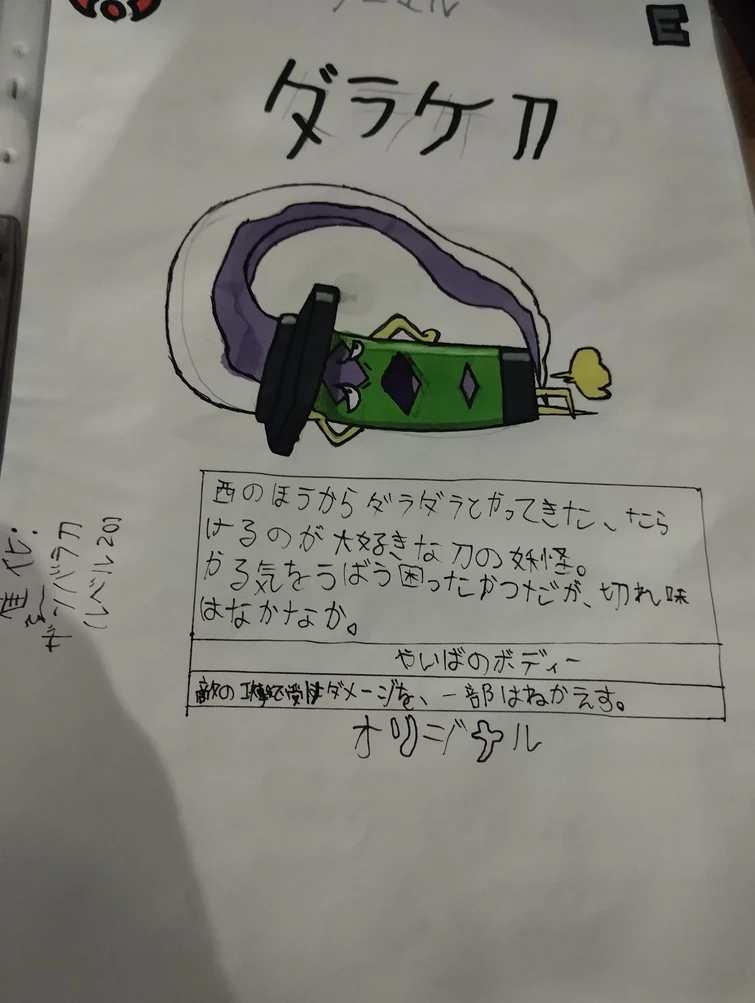 E
ダラケ刀
西のほうからダラダラとやってきた、たら
けるのが大好きな刀の妖怪。
かる気をうばう困ったかつだが、切れ味
はなかなか。
やいばのボディー
敵の攻撃で受けダメージを、一部はねかえす。
オリジナル
進化:
ギンバラ刀
(レベル20)